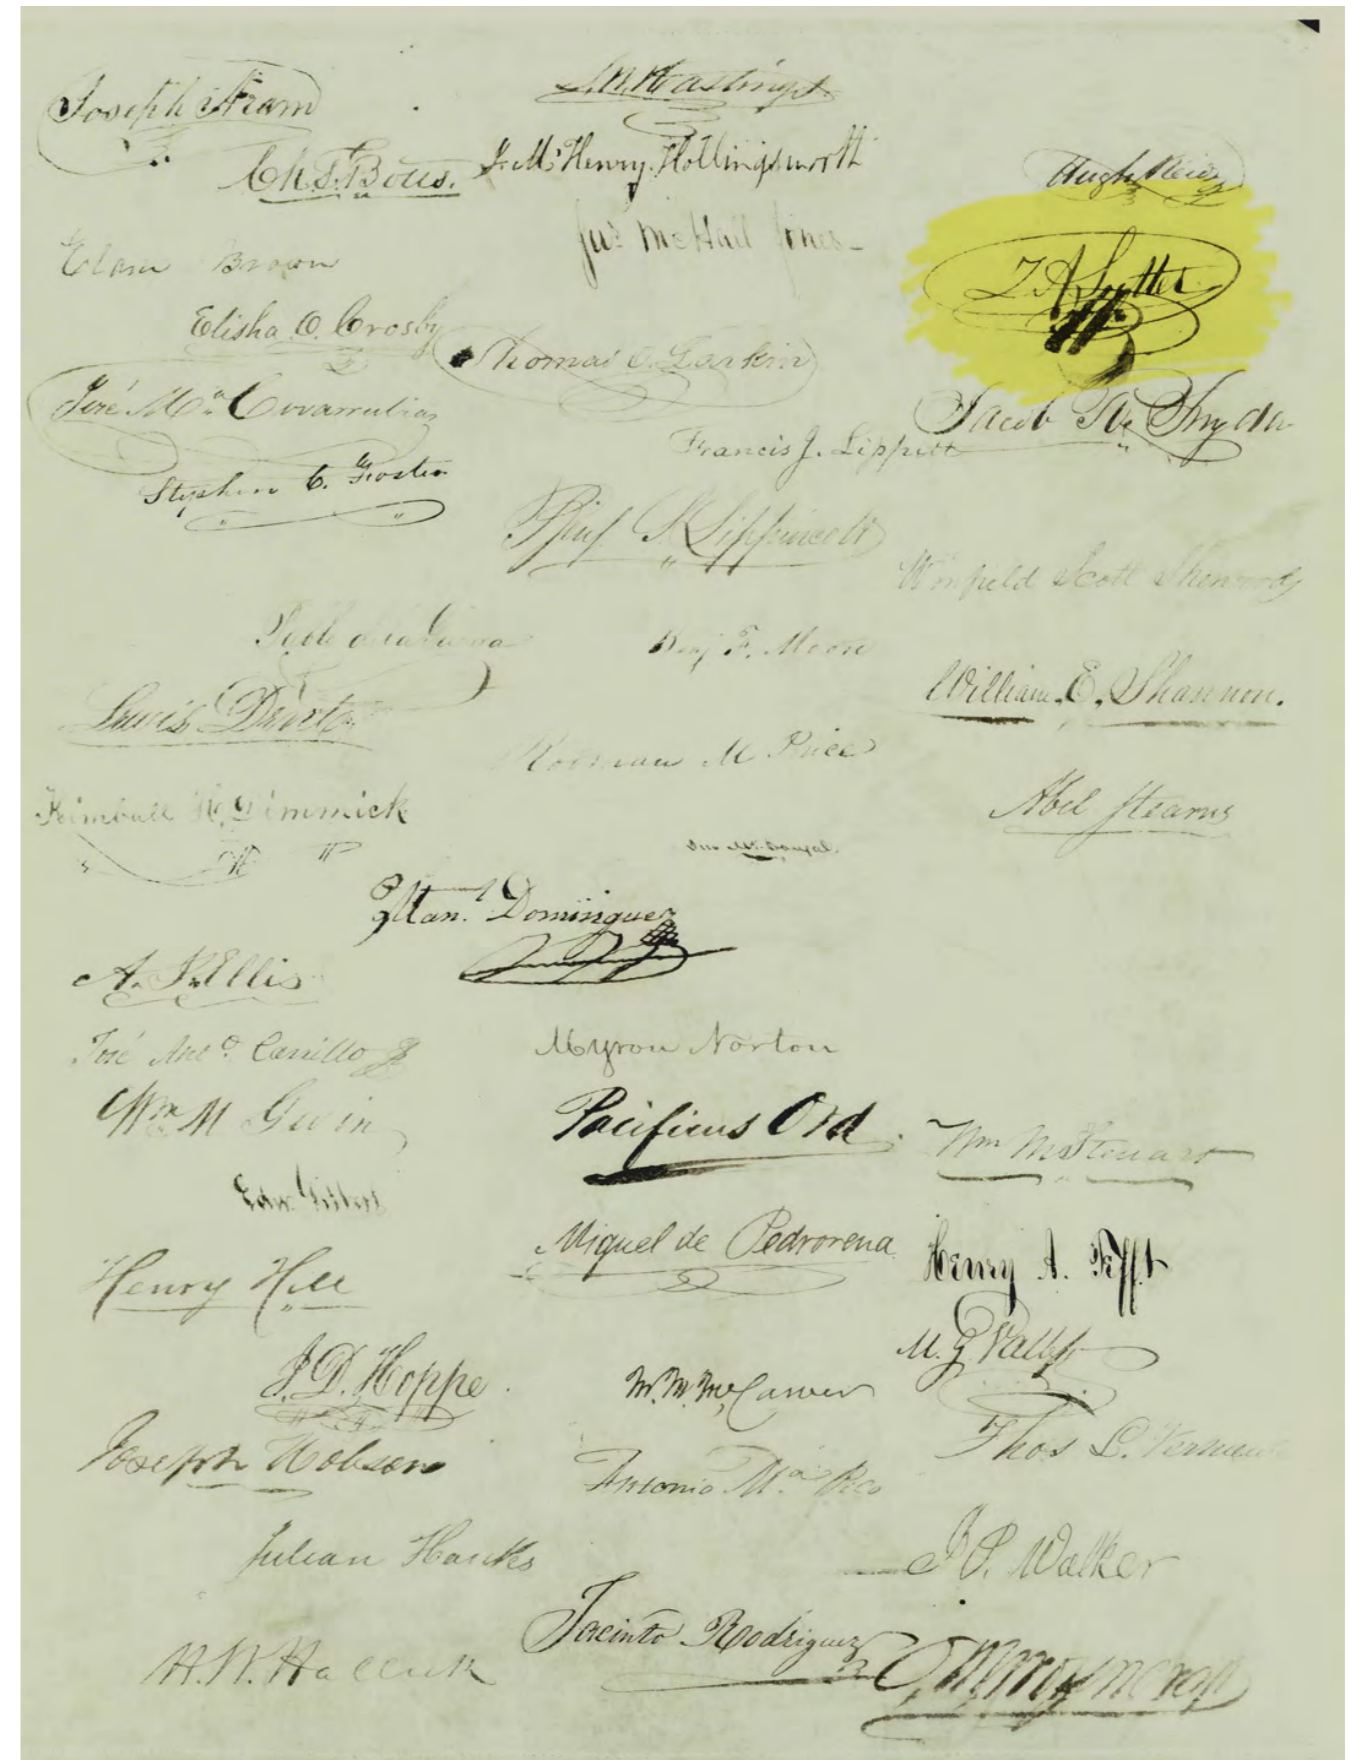 Joseph Aram
Chs. T. Botts.
Elam Brown
Elisha O. Crosby
José Ma. Covarrubias
Stephen C. Foster
Pablo de la Guerra
Lewis Dent
Kimball H. Dimmick
Man.l Dominguez
A. J. Ellis
José Anto. Carrillo
Wm. M Gwin
Edw. Gilbert
Henry Hill
J. D. Hoppe.
Joseph Hobson
Julian Hanks
H. W. Halleck
L. W. Hastings
J. Mc.Henry. Hollingsworth
Jas McHall Jones
Thomas O. Larkin
Francis J. Lippitt
Benj S. Lippincott
Benj. F. Moore
Rodman M Price
Jno Mc.Dougal.
Myron Norton
Pacificus Ord
Miguel de Pedrorena
M. M. McCarver
Antonio Ma Pico
Jacinto Rodriguez
Hugh Reid
J A Sutter
Jacob R. Snyder
Winfield Scott Sherwood
William. E. Shannon.
Abel Stearns
Wm M Steuart
Henry A. Tefft
M. G. Vallejo
Thos L. Vermeule
J. P. Walker
O. M. Wozencraft